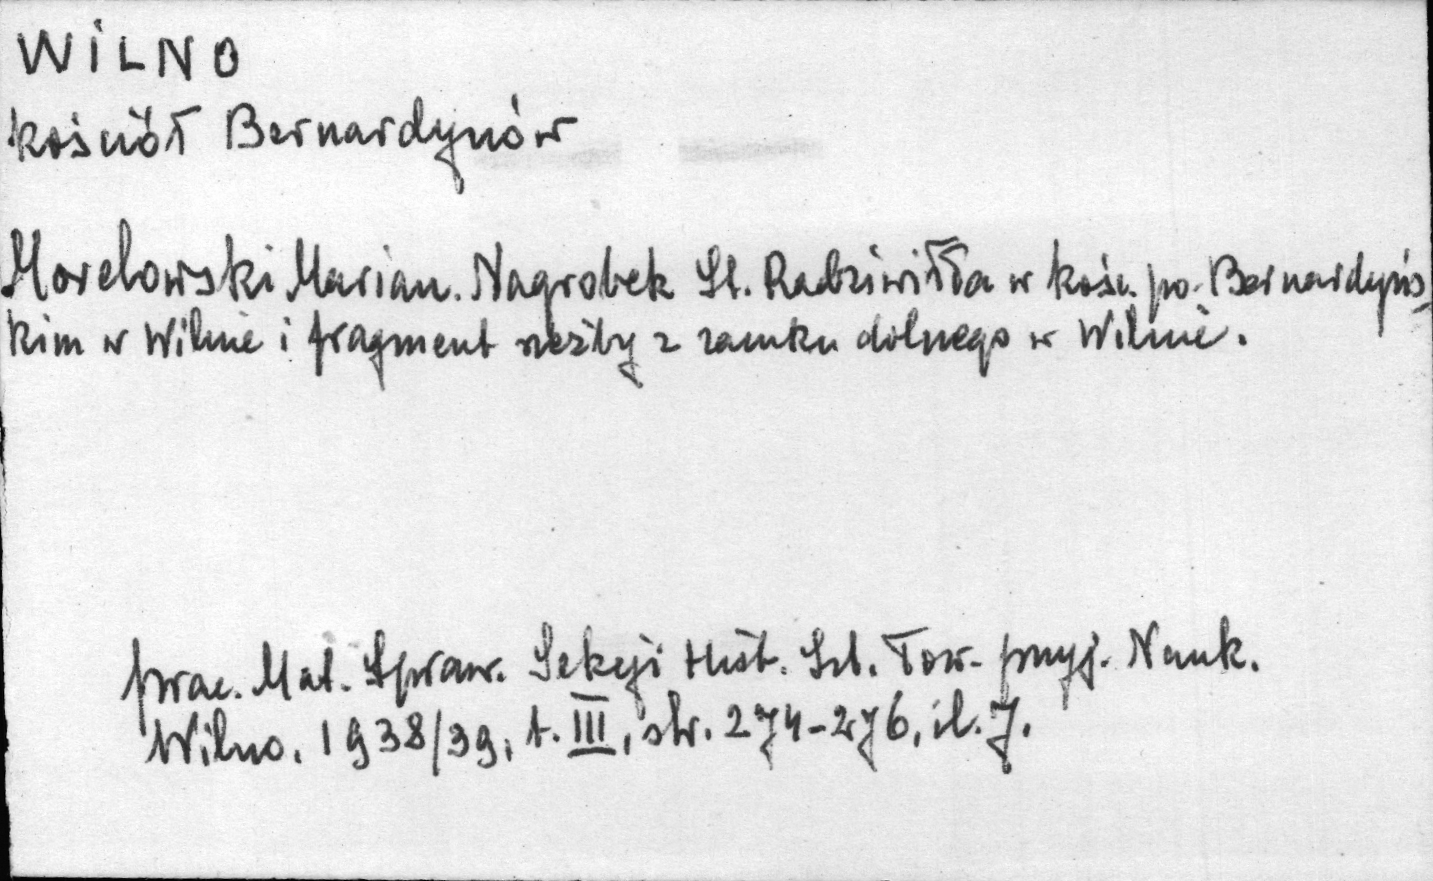 WILNO
kościół Bernardynów
Morelowski Marian. Nagrobek St. Radziwiłła w kośc. po-Bernardyńs-
kim w Wilnie i fragment rzeźby z zamku dolnego w Wilnie.
prac. Mat. Spraw. Sekcji Hist. Szt. Tow. przyj. Nauk.
Wilno. 1938/39, t. III, str. 274-276, il. 7.